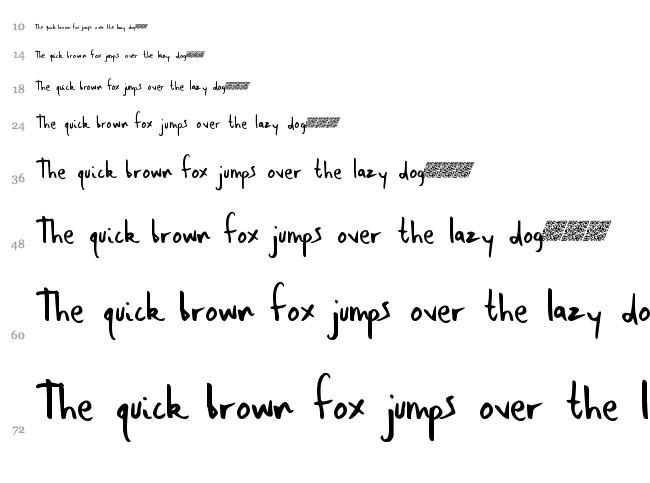 10 The quick brown fox jumps over the lazy dog
14 The quick brown fox jumps over the lazy dog
18 The quick brown fox jumps over the lazy dog
24 The quick brown fox jumps over the lazy dog
36 The quick brown fox jumps over the lazy dog
48 The quick brown fox jumps over the lazy dog
60 The quick brown fox jumps over the lazy do
72 The quick brown fox jumps over the l